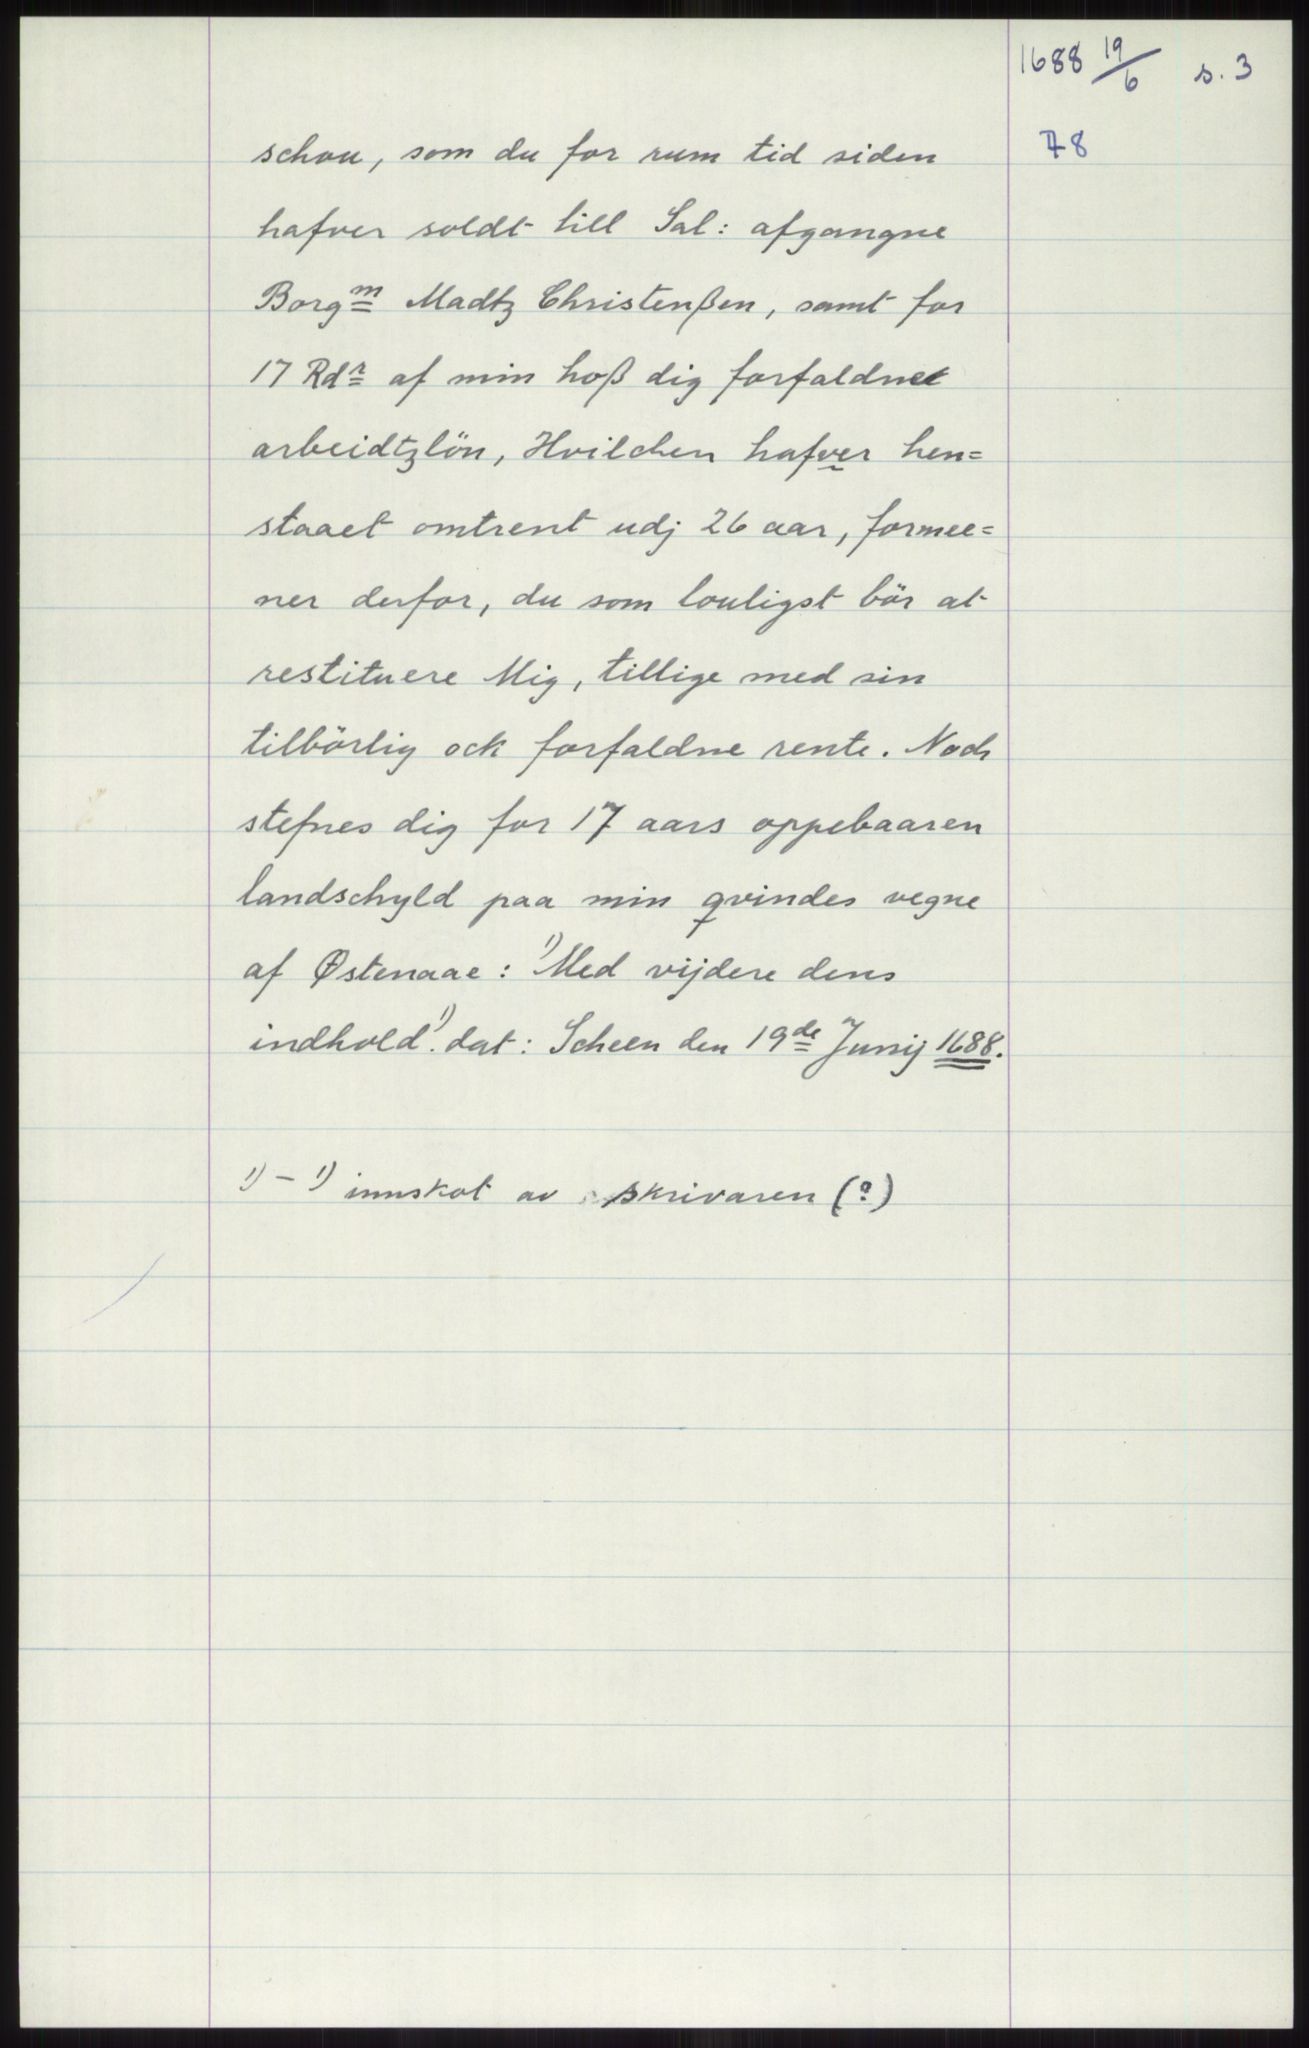 1688 19/6 s. 3
78
schou, som du for rum tid siden
hafver soldt till Sal: afgangne
Borgm Madtz Christenßen, samt for
17 Rdr af min hoß dig forfaldnet
arbeidtzlön, Hvilchen hafver hen=
staaet omtrent udj 26 aar, formee=
ner derfor, du som louligst bör at
restituere Mig, tillige med sin
tilbörlig ock forfaldne rente. Noch
stefnes dig for 17 aars oppebaaren
landschyld paa min qvindes vegne
af Østenaae: 1) Med vijdere dens
indhold 1). dat: Scheen den 19de Junij 1688.
1) – 1) innskot av skrivaren (?)